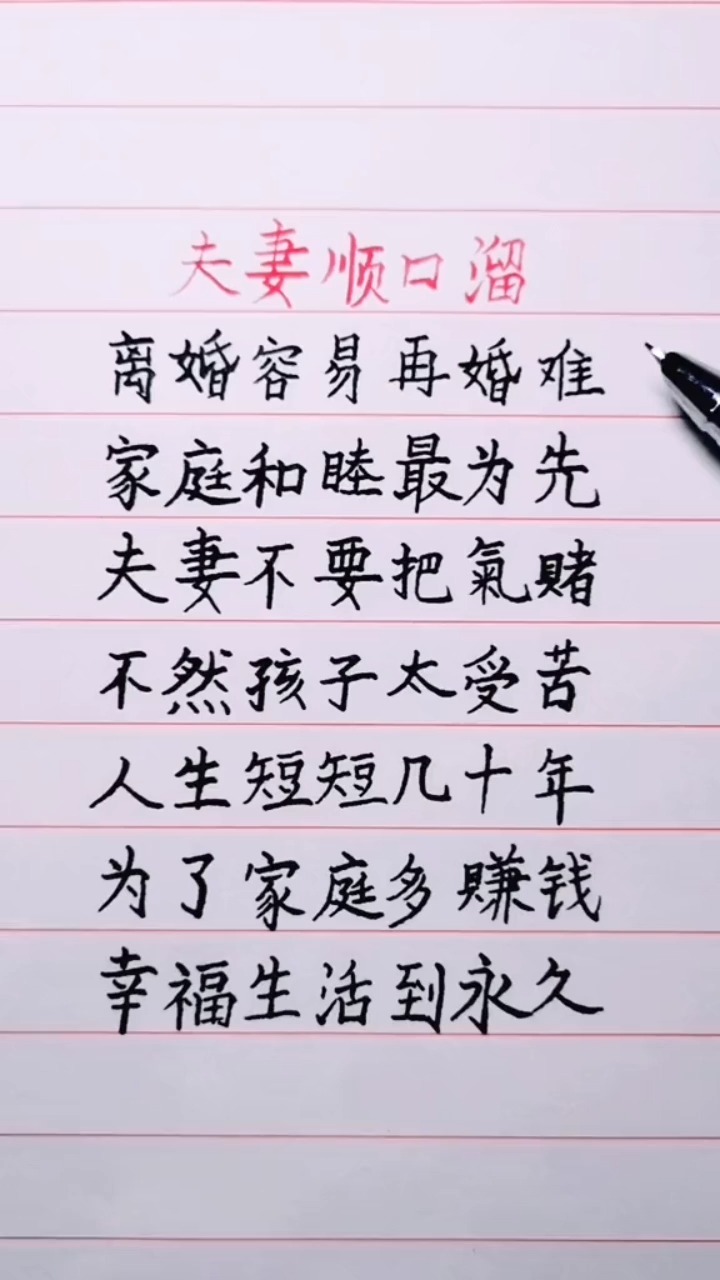 夫妻顺口溜
离婚容易再婚难
家庭和睦最为先
夫妻不要把氣赌
不然孩子太受苦
人生短短几十年
为了家庭多赚钱
幸福生活到永久